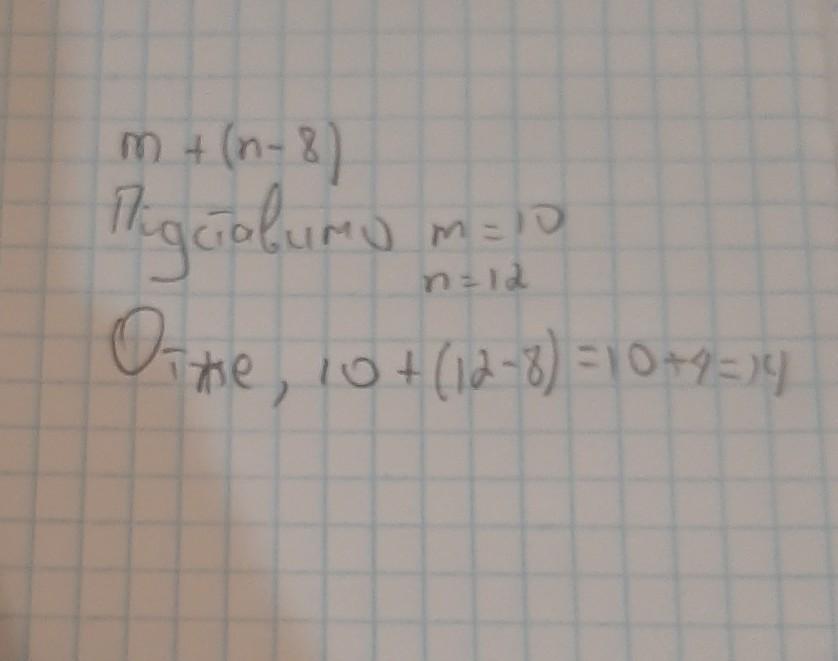 m + (n - 8)
Підставимо m = 10
n = 12
Отже, 10 + (12 - 8) = 10 + 4 = 14